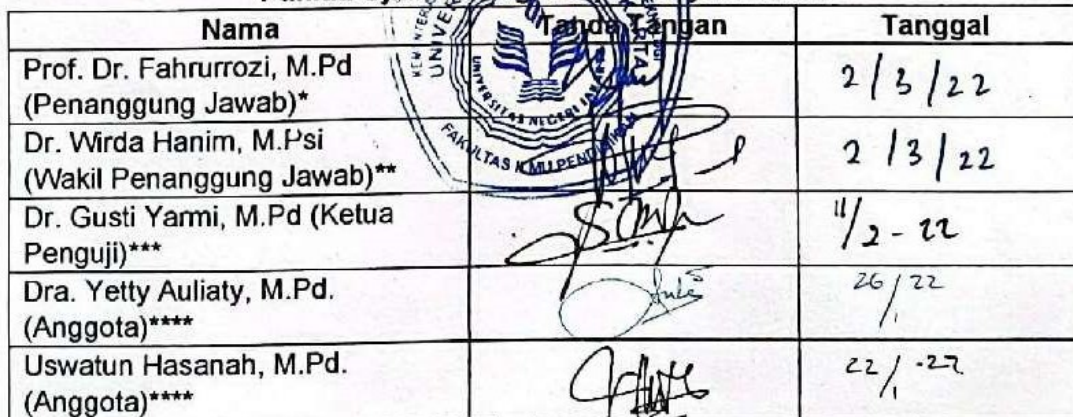 Nama Tanda Tangan Tanggal
Prof. Dr. Fahrurrozi, M.Pd
(Penanggung Jawab)* 2/3/22
Dr. Wirda Hanim, M.Psi
(Wakil Penanggung Jawab)** 2/3/22
Dr. Gusti Yarmi, M.Pd (Ketua
Penguji)*** 11/2-22
Dra. Yetty Auliaty, M.Pd.
(Anggota)**** 26/1 22
Uswatun Hasanah, M.Pd.
(Anggota)****
UNIVERSITAS NEGERI
FAKULTAS ILMU PENDIDIKAN